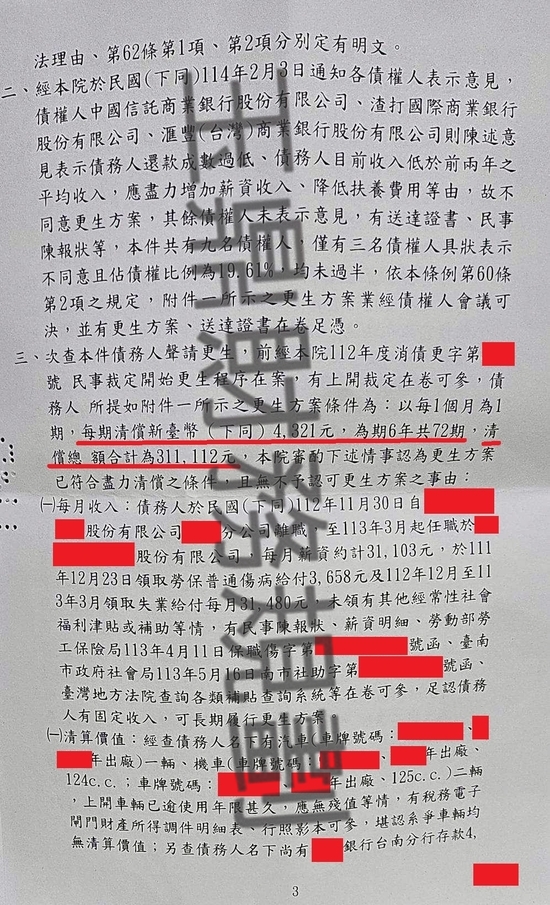 法理由、第62條第1項、第2項分別定有明文。
二、經本院於民國(下同)114年2月3日通知各債權人表示意見，
債權人中國信託商業銀行股份有限公司、渣打國際商業銀行
股份有限公司、滙豐(台灣)商業銀行股份有限公司則陳述意
見表示債務人還款成數過低、債務人目前收入低於前兩年之
平均收入，應盡力增加薪資收入、降低扶養費用等由，故不
同意更生方案，其餘債權人未表示意見，有送達證書、民事
陳報狀等，本件共有九名債權人，僅有三名債權人具狀表示
不同意且佔債權比例為19.61%，均未過半，依本條例第60條
第2項之規定，附件一所示之更生方案業經債權人會議可
決，並有更生方案、送達證書在卷足憑。
三、次查本件債務人聲請更生，前經本院112年度消債更字第
號 民事裁定開始更生程序在案，有上開裁定在卷可參，債
務人 所提如附件一所示之更生方案條件為：以每1個月為1
期，每期清償新臺幣（下同）4,321元，為期6年共72期，清
償總 額合計為311,112元，本院審酌下述情事認為更生方案
已符合盡力清償之條件，且無不予認可更生方案之事由：
㈠每月收入：債務人於民國(下同)112年11月30日自
股份有限公司 分公司離職，至113年3月起任職於
股份有限公司，每月薪資約計31,103元，於111
年12月23日領取勞保普通傷病給付3,658元及112年12月至11
3年3月領取失業給付每月31,480元，未領有其他經常性社會
福利津貼或補助等情，有民事陳報狀、薪資明細、勞動部勞
工保險局113年4月11日保職傷字第 號函、臺南
市政府社會局113年5月16日南市社助字第 號函、
臺灣地方法院查詢各類補貼查詢系統等在卷可參，足認債務
人有固定收入，可長期履行更生方案
㈠清算價值：經查債務人名下有汽車(車牌號碼： 、
年出廠)一輛、機車(車牌號碼： 、 年出廠、
124c.c.；車牌號碼： 、 年出廠、125c.c.)二輛
，上開車輛已逾使用年限甚久，應無殘值等情，有稅務電子
閘門財產所得調件明細表、行照影本可參，堪認系爭車輛均
無清算價值；另查債務人名下尚有 銀行台南分行存款4,
3
玉鼎助你擺書劃